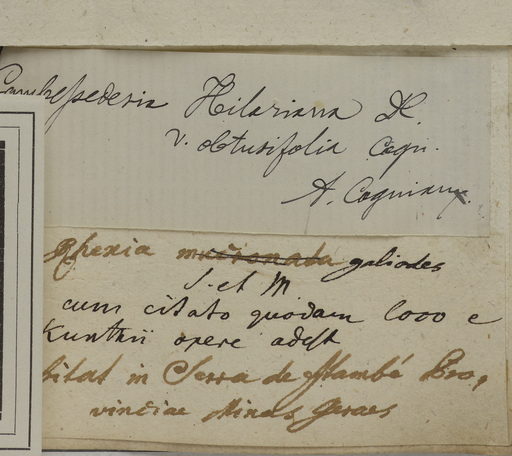 Cambessedesia Hilariana DC.
v. obtusifolia Cogn.
A. Cogniaux
Rhexia mucronada galiodes
S. et M
cum citato quodam loco e
Kunthii opere adest
bitat in Serra de Itambé Pro,
vinciae Minas Geraes